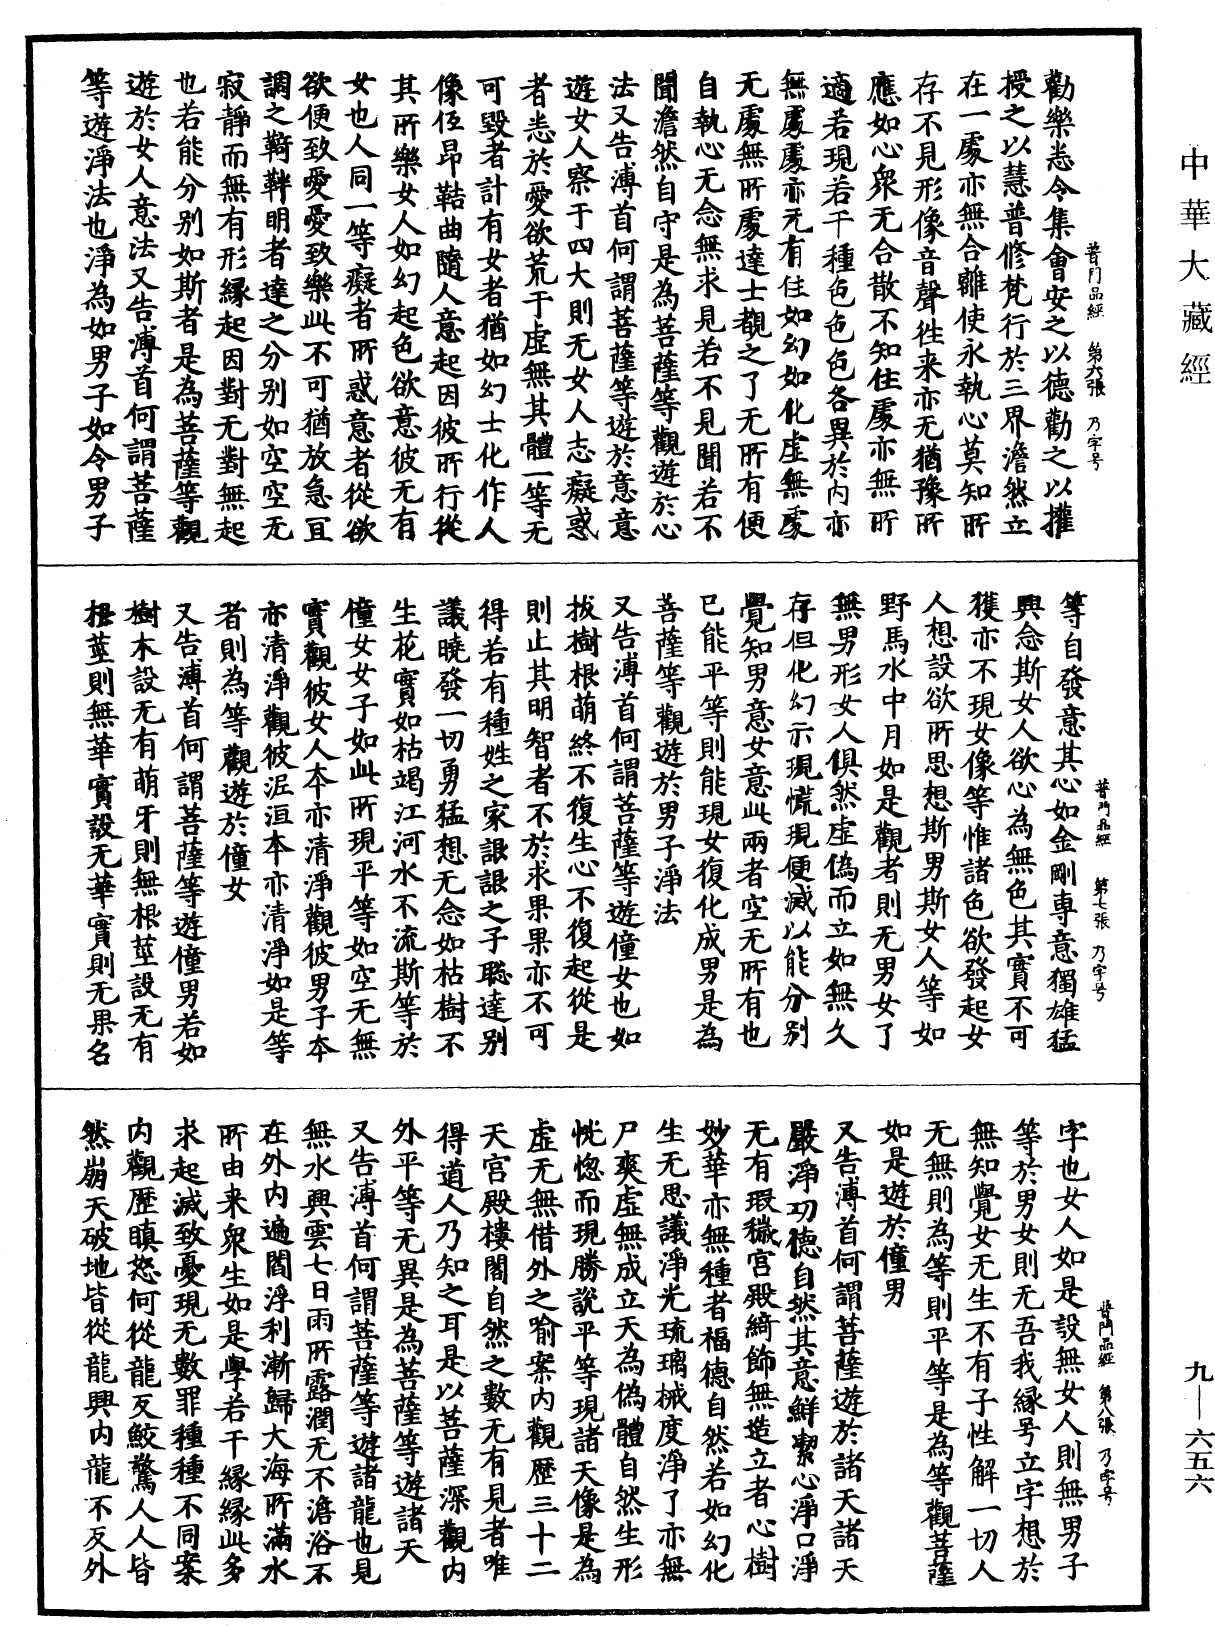 中華大藏經
普門品經　第六張　乃字号
勸樂恙令集會安之以德勸之以攉
授之以慧普修梵行於三界澹然立
在一處亦無合離使永執心莫知所
存不見形像音聲徃来亦无猶豫所
應如心衆无合散不知住處亦無所
適若現若干種色色色各異於内亦
無處處亦无有住如幻如化虛無處
无處無所處達士覩之了无所有便
自執心无念無求見若不見聞若不
聞澹然自守是為菩薩等觀遊於心
法又告溥首何謂菩薩等遊於意意
遊女人察于四大則无女人志癡惑
者恙於愛欲荒于虛無其體一等无
可毀者計有女者猶如幻士化作人
像伍昂䩞曲隨人意起因彼所行從
其所樂女人如幻起色欲意彼无有
女也人同一等癡者所惑意者從欲
欲便致愛憂致樂此不可猶放急冝
調之鞫靽明者達之分别如空空无
寂静而無有形緣起因對无對無起
也若能分别如斯者是為菩薩等觀
遊於女人意法又告溥首何謂菩薩
等遊淨法也淨為如男子如令男子
普門品經　第七張　乃字号
等自發意其心如金剛專意獨雄猛
興念斯女人欲心為無色其實不可
獲亦不現女像等惟諸色欲發起女
人想設欲所思想斯男斯女人等如
野馬水中月如是觀者則无男女了
無男形女人俱然虛偽而立如無久
存但化幻示現慌現便滅以能分别
覺知男意女意此兩者空无所有也
已能平等則能現女復化成男是為
菩薩等觀遊於男子淨法
又告溥首何謂菩薩等遊僮女也如
拔樹根萌終不復生心不復起從是
則止其明智者不於求果果亦不可
得若有種姓之家詪詪之子聡達别
議曉發一切勇猛想无念如枯樹不
生花實如枯竭江河水不流斯等於
僮女女子如此所現平等如空无無
實觀彼女人本亦清淨觀彼男子本
亦清淨觀彼泥洹本亦清淨如是等
者則為等觀遊於僮女
又告溥首何謂菩薩等遊僮男若如
樹木設无有萌牙則無根莖設无有
根莖則無華實設无華實則无果名
普門品經　第八張　乃字号
字也女人如是設無女人則無男子
等於男女則无吾我緣号立字想於
無知覺女无生不有子性解一切人
无無則為等則平等是為等觀菩薩
如是遊於僮男
又告溥首何謂菩薩遊於諸天諸天
嚴淨功德自然其意鮮潔心淨口淨
无有瑕穢宫殿綺飾無造立者心樹
妙華亦無種者福德自然若如幻化
生无思議淨光琉璃械度淨了亦無
尸爽虛無成立天為偽體自然生形
恍惚而現勝說平等現諸天像是為
虛无無借外之喻案内觀歷三十二
天宫殿樓閣自然之數无有見者唯
得道人乃知之耳是以菩薩深觀内
外平等无異是為菩薩等遊諸天
又告溥首何謂菩薩等遊諸龍也見
無水興雲七日雨所露潤无不澹浴不
在外内遍閻浮利漸歸大海所滿水
所由来衆生如是學若干緣緣此多
求起滅致憂現无數罪種種不同案
内觀歷瞋怒何從龍忈鮫驚人人皆
然崩天破地皆從龍興内龍不忈外
九—六五六